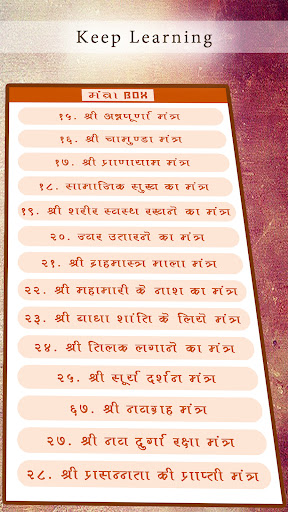 Keep Learning
मंत्रा BOX
१५. श्री अन्नपूर्णा मंत्र
१६. श्री चामुण्डा मंत्र
१७. श्री प्राणायाम मंत्र
१८. सामाजिक सुख का मंत्र
१९. श्री शरीर स्वस्थ रखने का मंत्र
२०. ज्वर उतारने का मंत्र
२१. श्री ब्राहमास्त्र माला मंत्र
२२. श्री महामारी के नाश का मंत्र
२३. श्री बाधा शांति के लिये मंत्र
२४. श्री तिलक लगाने का मंत्र
२५. श्री सूर्य दर्शन मंत्र
६७. श्री नवग्राह मंत्र
२७. श्री नव दुर्गा रक्षा मंत्र
२८. श्री प्रासन्नता की प्राप्ती मंत्र